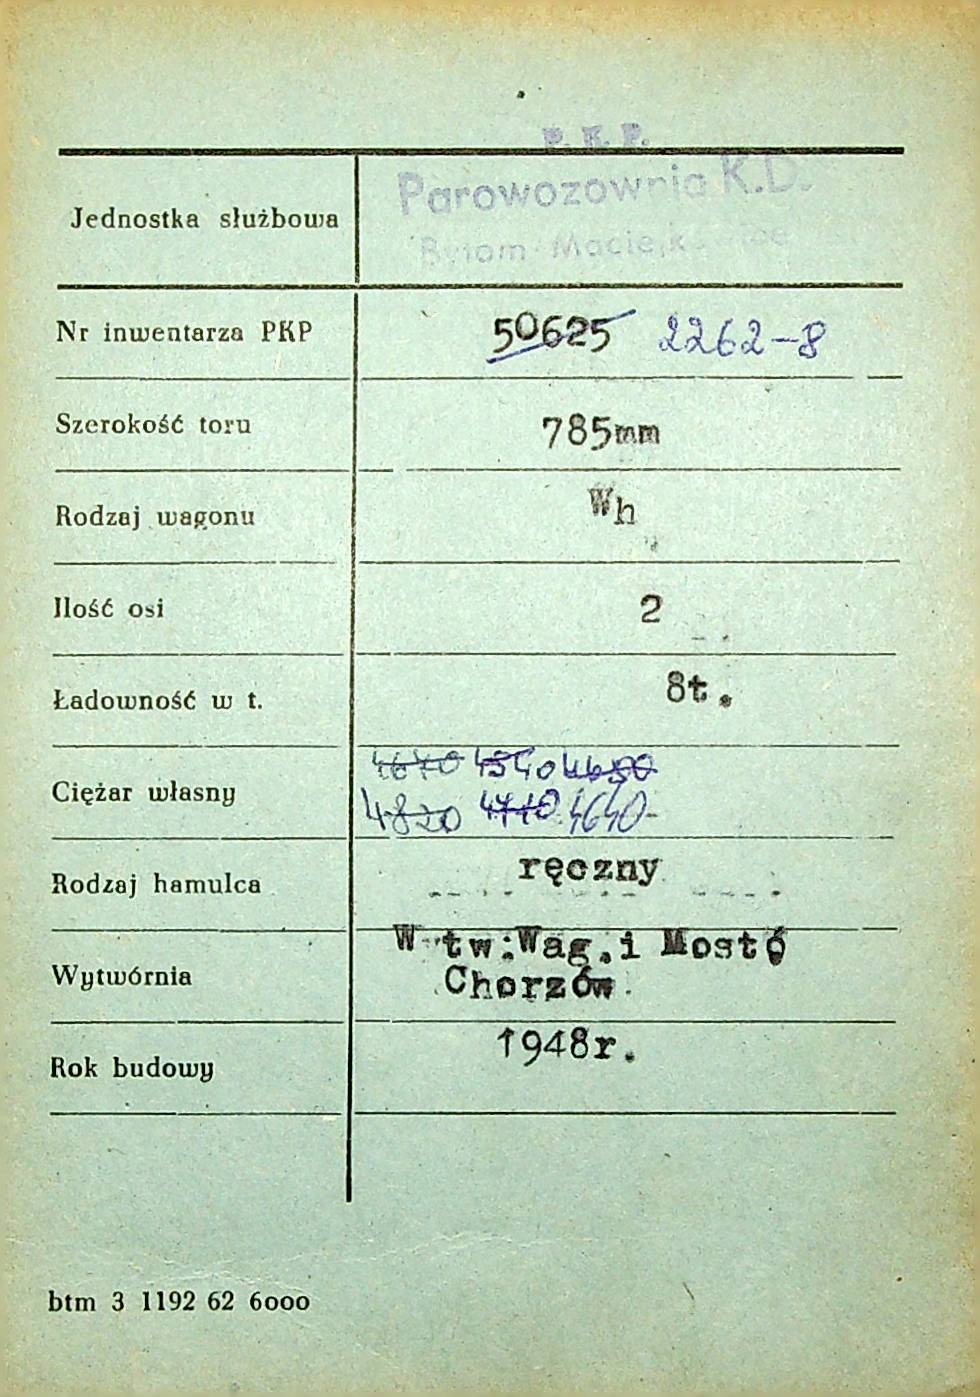 P. K. P.
Parowozownia K.D.
Jednostka służbowa
Bytom
Nr inwentarza PKP 50625 2262-8
Szerokość toru 785mm
Rodzaj wagonu Wh
Ilość osi 2
Ładowność w t. 8t.
4670 4540 4650
Ciężar własny
4820 4710 4640-
Rodzaj hamulca ręczny
W tw:Wag.i Mostó
Wytwórnia
Chorzów
Rok budowy 1948r.
btm 3 1192 62 6000